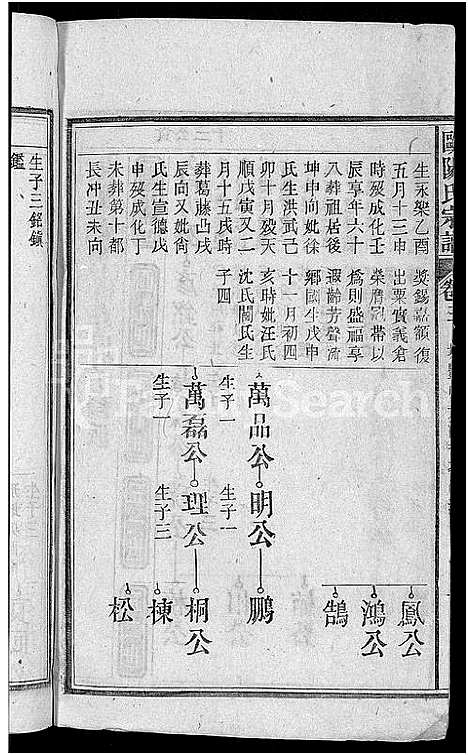 歐陽氏宗譜
生永樂乙酉
五月十三申
時歿成化壬
辰享年六十
八葬祖居後
坤申向妣徐
氏生洪武己
卯十月歿天
順戊寅又二
月十五戌時
葬葛藤凸戌
辰向又妣尙
氏生宣德戊
申歿成化丁
未葬第十都
長冲丑未向
獎錫嘉額復
出粟實義倉
榮膺冠帶以
爲則盛福享
遐齡芳聲
鄉國生戊申
十一月初四
亥時妣汪氏
沈氏閻氏生
子四
鳳公
鴻公
鵠
萬品公 明公 鵬
生子一 生子一
萬磊公 理公 桐公
生子一 生子三
棟
松
生子三銘鎮
鑑